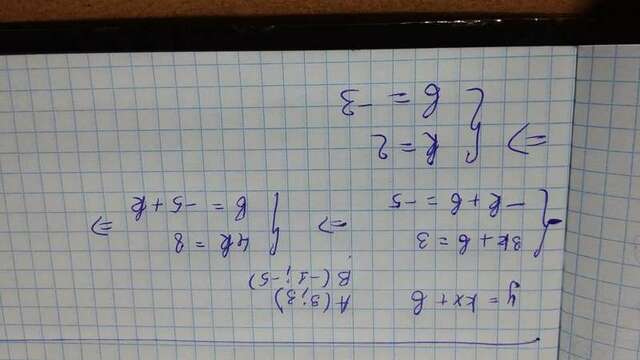 y = kx + b
A(3; 3)
B(-1; -5)
{ 3k + b = 3
-k + b = -5
=> { 4k = 8
b = -5 + k
=>
=> { k = 2
b = -3